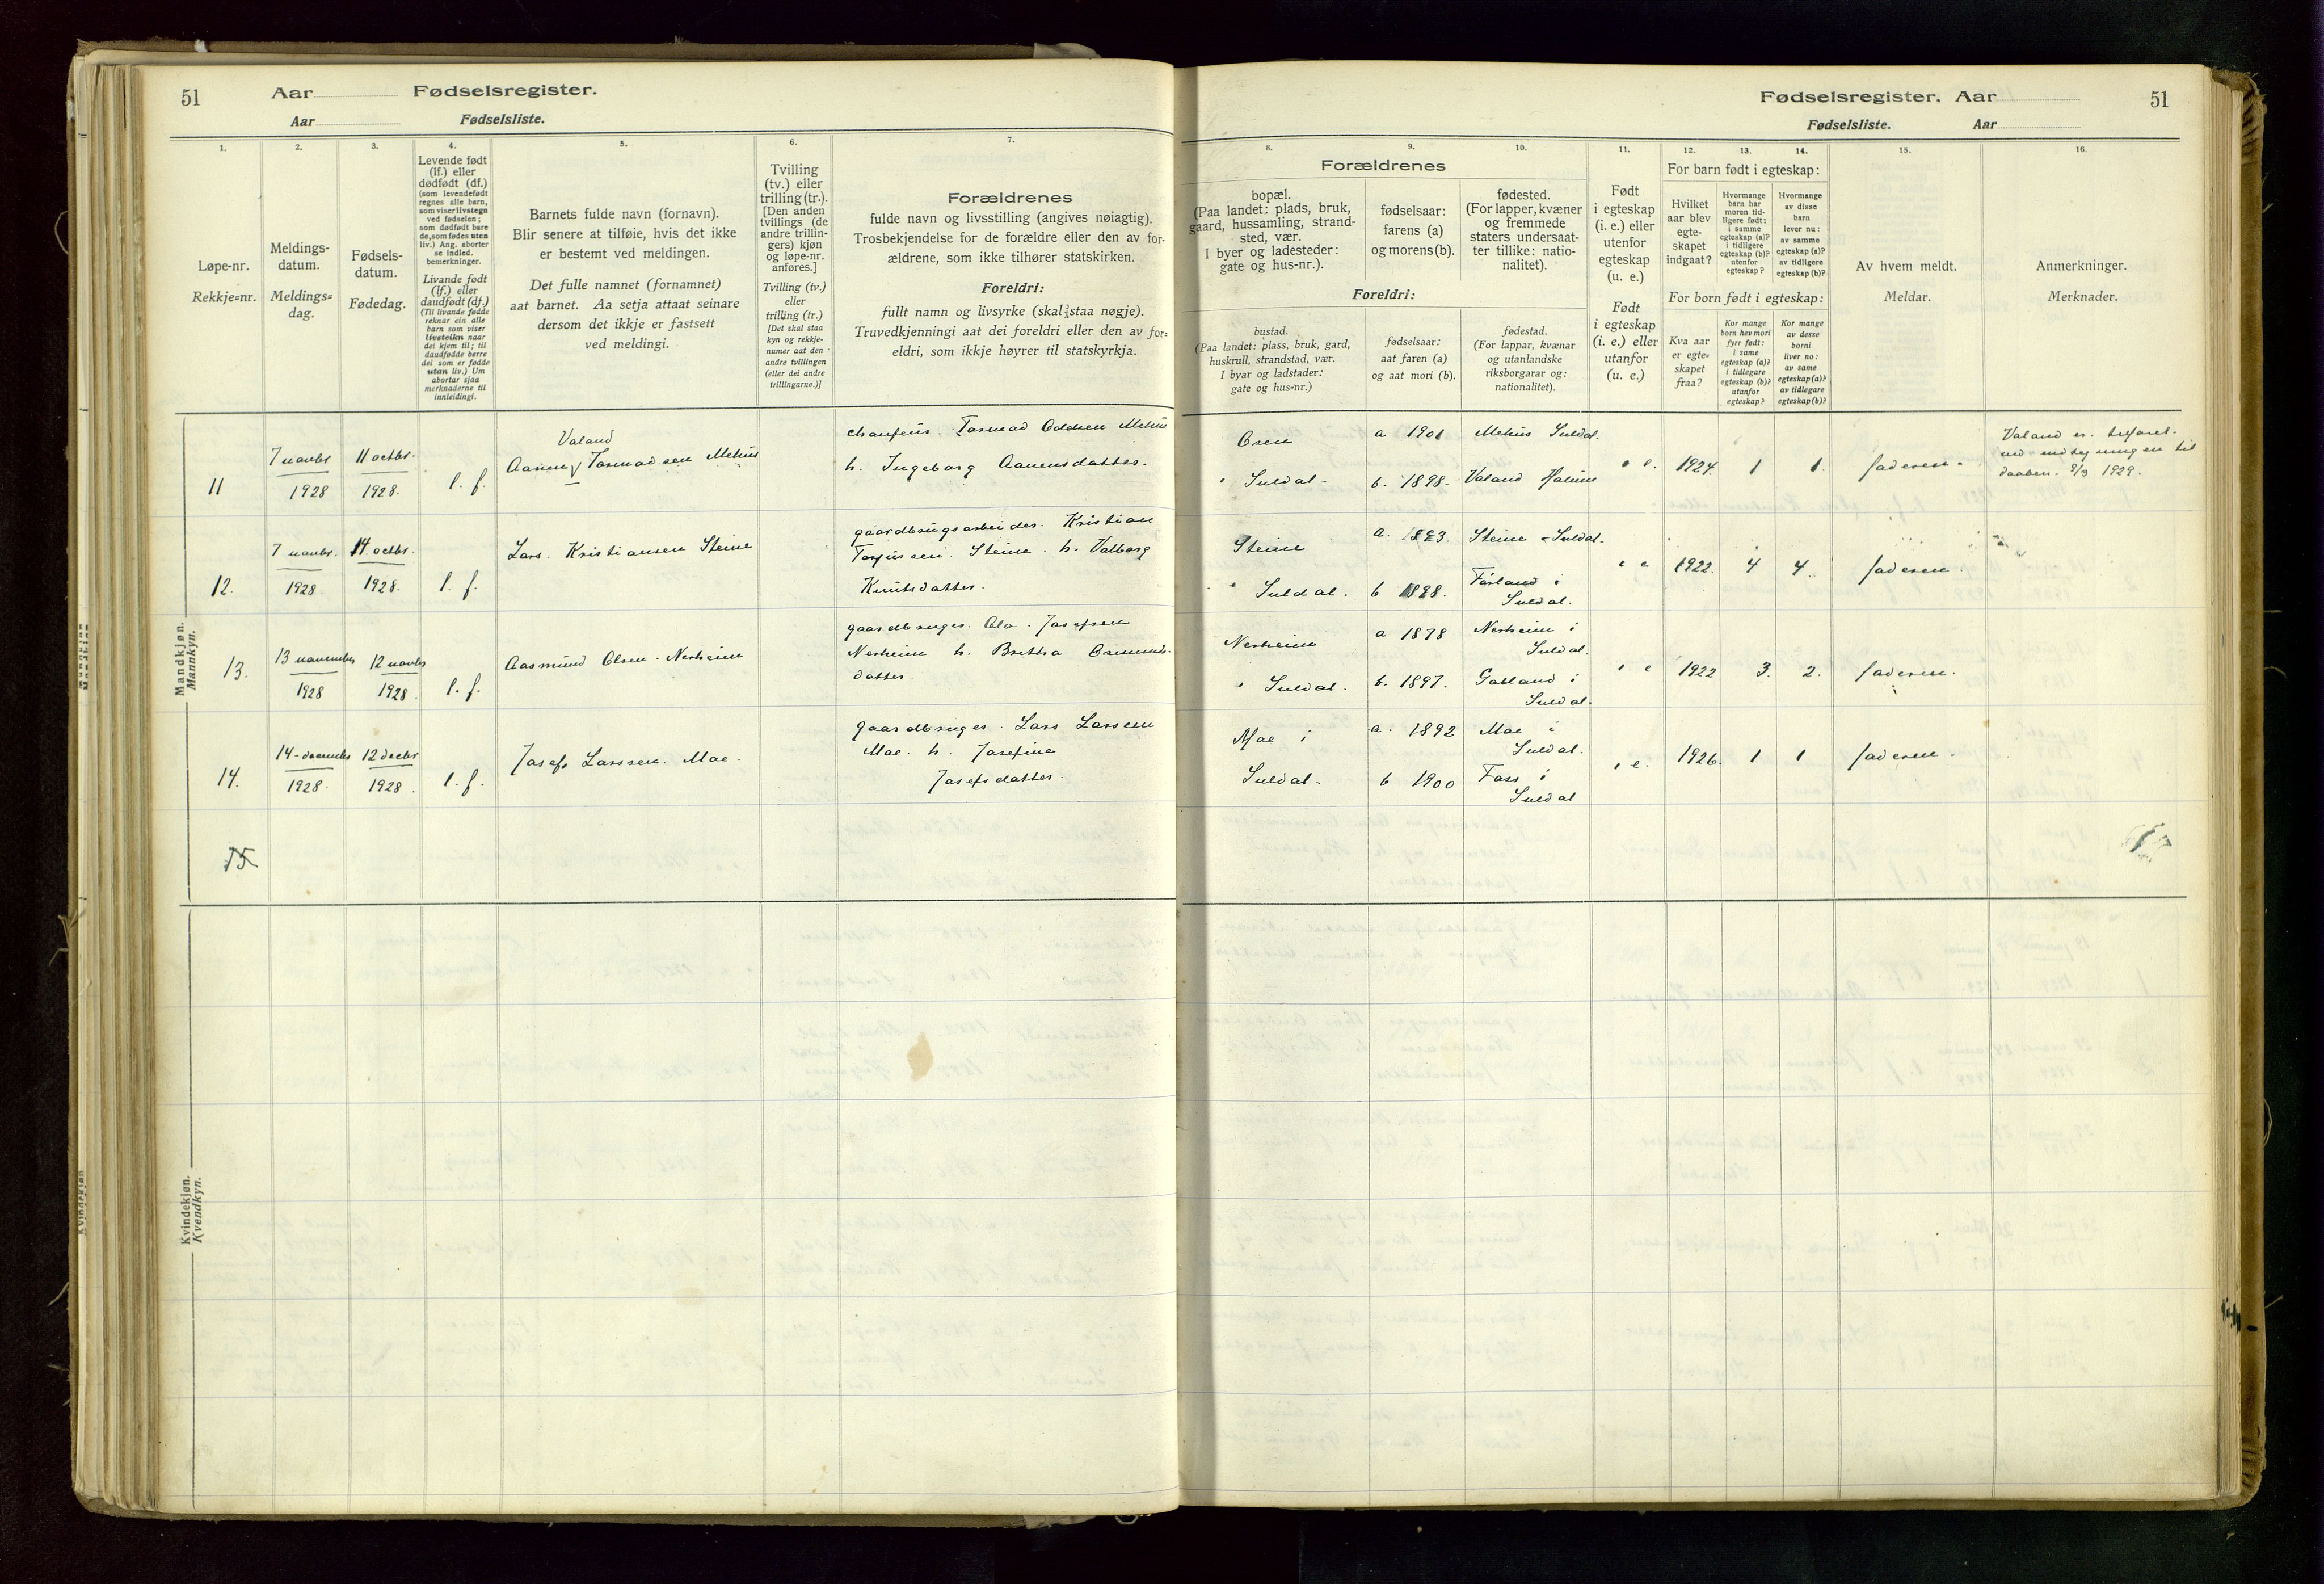 51
Aar
Fødselsregister.
Aar
Fødselsliste.
1.
Løpe-nr.
Rekkje=nr.
2.
Meldings-
datum.
Meldings=
dag.
3.
Fødsels-
datum.
Fødedag.
4.
Levende født
(lf.) eller
dødfødt (df.)
(som levendefødt
regnes alle barn,
som viser livstegn
ved fødselen;
som dødfødt bare
de, som fødes uten
liv.) Ang. aborter
se indled.
bemerkninger.
Livande født
(lf.) eller
daudfødt (df.)
(Til livande fødde
reknar ein alle
barn som viser
livsteikn naar
dei kjem til; til
daudfødde berre
dei som er fødde
utan liv.) Um
abortar sjaa
merknaderne til
innleidingi.
5.
Barnets fulde navn (fornavn).
Blir senere at tilføie, hvis det ikke
er bestemt ved meldingen.
Det fulle namnet (fornamnet)
aat barnet. Aa setja attaat seinare
dersom det ikkje er fastsett
ved meldingi.
6.
Tvilling
(tv.) eller
trilling (tr.).
[Den anden
tvillings (de
andre trillin-
gers) kjøn
og løpe-nr.
anføres.]
Tvilling (tv.)
eller
trilling (tr.)
[Det skal staa
kyn og rekkje-
numer aat den
andre tvillingen
(eller dei andre
trillingarne.)]
7.
Forældrenes
fulde navn og livsstilling (angives nøiagtig).
Trosbekjendelse for de forældre eller den av for-
ældrene, som ikke tilhører statskirken.
Foreldri:
fullt namn og livsyrke (skal staa nøgje).
Truvedkjenningi aat dei foreldri eller den av for=
eldri, som ikkje høyrer til statskyrkja.
Mandkjøn.
Mannkyn.
11
7 novbr
1928
11 octbr.
1928.
l. f.
Valand
Aanen Tormodsen Mehus
chauffeur. Tormod Oddsen Mehus
h. Ingeborg Aanensdatter.
12.
7 novbr.
1928
14 octbr.
1928.
l. f.
Lars. Kristiansen Steine
gaardbrugsarbeider. Kristian
Steine. h. Valborg
Knutsdatter.
13.
13 november
1928
12 novbr
1928.
l. f.
Aasmund Olsen. Nerheim
gaardbruger. Ola. Josefsen
Nerheim h. Britha Osmunds-
datter.
14.
14 december
1928.
12 decbr
1928.
l. f.
Josef. Larssen. Moe.
gaardbruger. Lars Larssen
Moe. h. Josefine
Josefsdatter.
15
Kvindekjøn.
Kvendkyn.
Fødselsregister. Aar
51
Fødselsliste.
Aar
8.
Forældrenes
bopæl.
(Paa landet: plads, bruk,
gaard, hussamling, strand-
sted, vær.
I byer og ladesteder:
gate og hus-nr.).
Foreldri:
bustad.
(Paa landet: plass, bruk, gard,
huskrull, strandstad, vær.
I byar og ladstader:
gate og hus=nr.)
9.
fødselsaar:
farens (a)
og morens (b).
fødselsaar:
aat faren (a)
og aat mori (b).
10.
fødested.
(For lapper, kvæner
og fremmede
staters undersaat-
ter tillike: natio-
nalitet).
fødestad.
(For lappar, kvænar
og utanlandske
riksborgarar og:
nationalitet).
11.
Født
i egteskap
(i. e.) eller
utenfor
egteskap
(u. e.)
Født
i egteskap
(i. e.) eller
utanfor
egteskap
(u. e.)
12.
13.
14.
For barn født i egteskap:
Hvilket
aar blev
egte-
skapet
indgaat?
Hvormange
barn har
moren tid-
ligere født:
i samme
egteskap (a)?
i tidligere
egteskap (b)?
utenfor
egteskap?
Hvormange
av disse
barn
lever nu:
av samme
egteskap (a)?
av tidligere
egteskap (b)?
For born født i egteskap:
Kva aar
er egte=
skapet
fraa?
Kor mange
born hev mori
fyrr født:
i same
egteskap (a)?
i tidlegare
egteskap (b)?
utanfor
egteskap?
Kor mange
av desse
borni
liver no:
av same
egteskap (a)?
av tidlegare
egteskap (b)?
15.
Av hvem meldt.
Meldar.
16.
Anmerkninger.
Merknader.
Osen
i Suldal.
a 1901
b. 1898.
Mehus Suldal.
Valand
i e.
1924.
1
1.
faderen.
Valand er tilføiet
til
daaben. 1929.
Steine
i Suldal.
a. 1893.
b 1898.
Steine Suldal.
Førland i
Suldal.
i e
1922.
4
4.
faderen.
Nerheim
i Suldal.
a 1878
b. 1897.
Nerheim i
Suldal.
Gauland i
Suldal.
i e
1922
3.
2.
faderen.
Moe i
Suldal.
a. 1892
b 1900
Moe i
Suldal.
Foss i
Suldal
i e.
1926.
1
1
faderen.